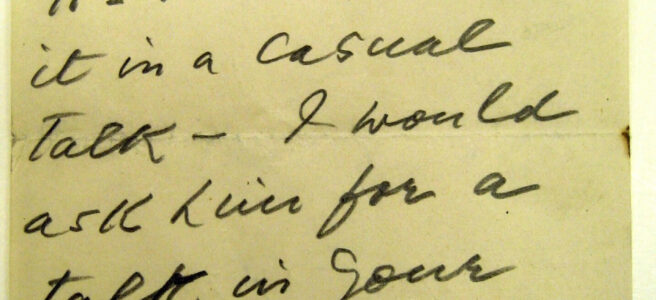 it in a casual
Talk – I would
ask him for a
talk in your